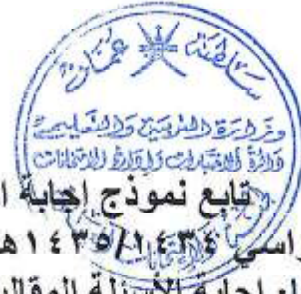 سلطنة عمان
وزارة التربية والتعليم
دائرة الاختبارات وإدارة الامتحانات
تابع نموذج إجابة ا
راسي ١٤٣٤/١٤٣٥ هـ
إجابة الأسئلة المقالي